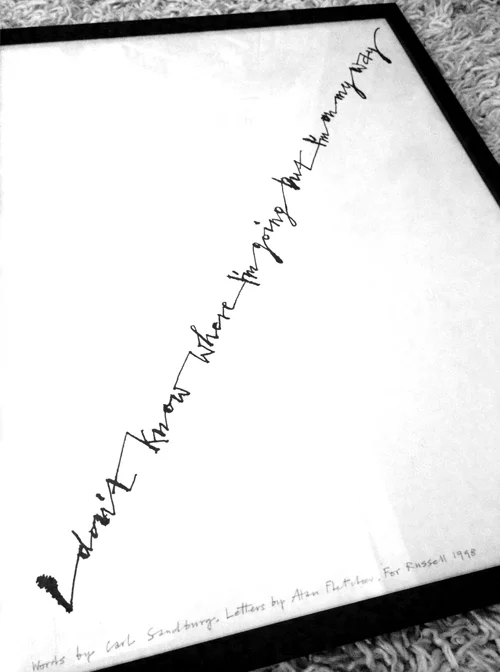 I don't know where I'm going but I'm on my way
Words by Carl Sandburg. Letters by Alan Fletcher. For Russell 1998